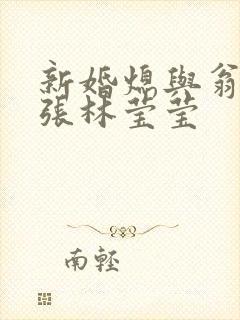 新婚熄與翁
張林莹莹
南輕